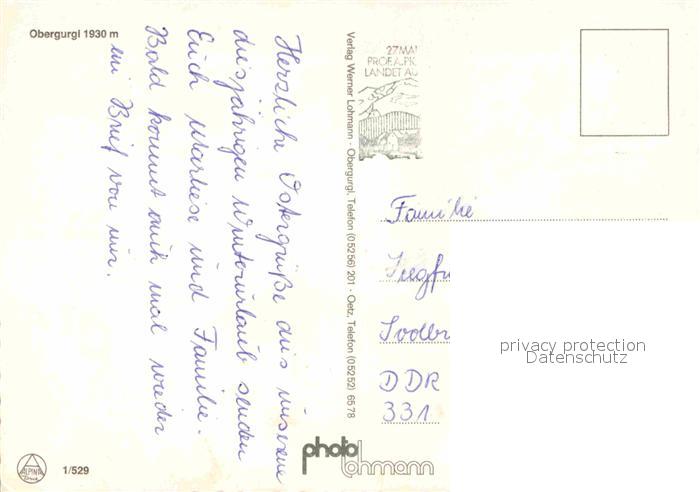 Obergurgl 1930 m
Herzliche Ostergrüße aus unserem
diesjährigen Winterurlaub senden
Euch Marliese und Familie.
Bald kommt auch mal wieder
ein Brief von mir.
Verlag Werner Lohmann - Obergurgl, Telefon (05256) 201 - Oetz, Telefon (05252) 6578
27 MAI
PROF. A. PIC
LANDET AU
Familie
Siegfr
DDR
331
privacy protection
Datenschutz
ALPINA
1/529
photo
lohmann